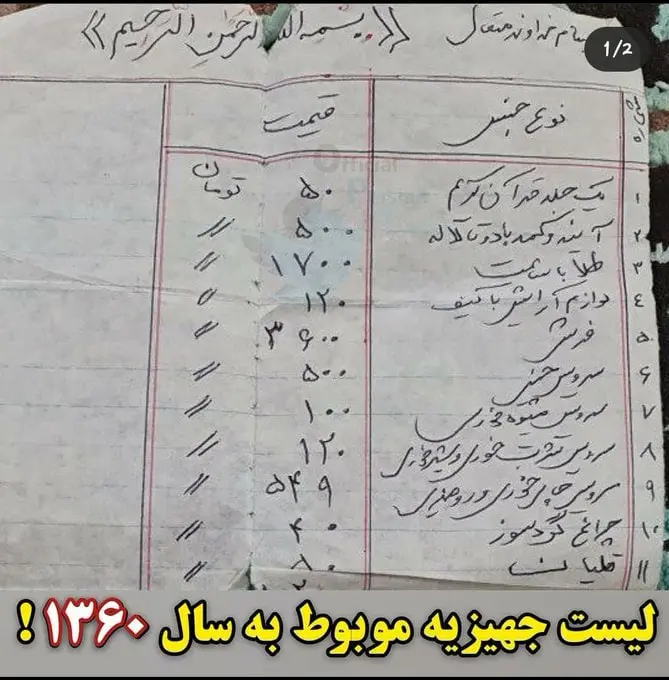 بنام خداوند متعال «بسم الله الرحمن الرحیم»
1/2
شماره نوع جنس قیمت
Official
۱ یک جلد قرآن کریم ۵۰ تومان
۲ آینه و کمد با دو تا لاله ۵۰۰ //
۳ طلا با ساعت ۱۷۰۰ //
٤ لوازم آرایش با کیف ۱۲۰ //
۵ فرش ۳۶۰۰ //
۶ سرویس چینی ۵۰۰ //
۷ سرویس میوه خوری ۱۰۰ //
۸ سرویس شربت خوری و شیرخوری ۱۲۰ //
۹ سرویس چای خوری و ۵۴۹ //
۱۰ چراغ گردسوز ۴۰ //
۱۱ قلیان //
لیست جهیزیه موبوط به سال ۱۳۶۰ !